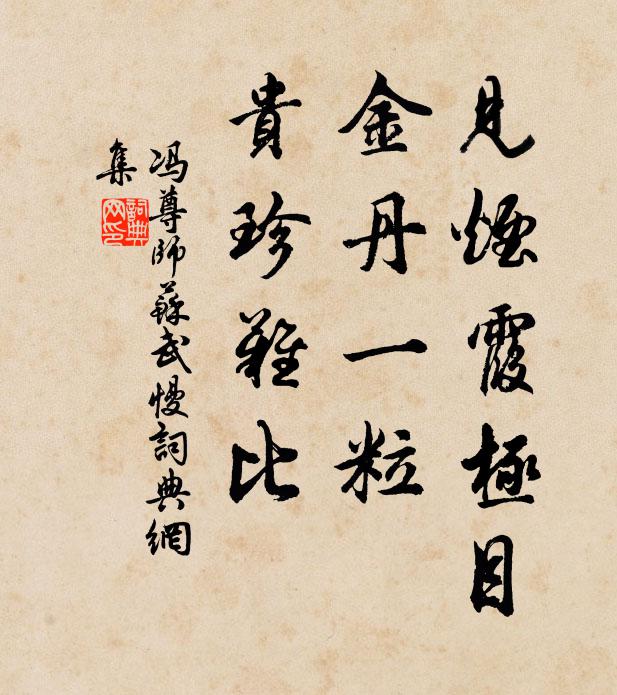 見煙霞極目
金丹一粒
貴珍難比
冯尊師蘇武慢詞典網
集
詞典網印